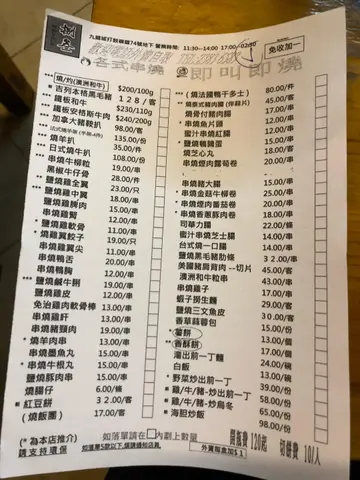 九龍城打鼓嶺道74號地下 營業時間: 11:30--14:00 17:00--02:00
免收加一
各式串燒 即叫即燒
燒/灼(澳洲和牛) $200/100g
吉列本格黑毛豬 128/客
* 鐵板和牛 $230/110g
* 鐵板安格斯牛肉 $240/200g
* 加拿大豬鞍扒 98.00/客
135.00/份
* 燒羊扒 35.00/件
* 日式燒牛扒 108.00/份
* 串燒牛柳粒 19.00/串
黑椒牛仔骨 28.00/件
* 鹽燒雞全翼 23.00/只
* 鹽燒雞中翼 18.00/串
鹽燒雞脾肉 15.00/串
串燒雞腎 15.00/串
* 鹽燒雞軟骨 19.00/串
* 串燒雞翼餃子 19.00/只
串燒雞翼尖 11.00/串
串燒鴨舌 20.00/串
串燒鴨胸 12.00/串
* 鹽燒鹹牛脷 19.00/串
鹽燒雞皮 12.00/串
免治雞肉軟骨棒 13.00/串
串燒雞肝 13.00/串
串燒豬頸肉 19.00/串
* 燒羊肉串 13.00/串
串燒墨魚丸 15.00/串
* 串燒牛根丸 15.00/串
鹽燒豚肉串 15.00/串
燒腸仔 6.00/條
紅豆餅 32.00/個
(燒飯團) 17.00/客
(燒法國鴨干多士) 80.00/件
45.00/客
燒骨付豬肉腸 17.00/串
* 串燒魚片頭 12.00/串
蜜汁串燒紅腸 12.00/串
* 鹽燒鵪鶉蛋 15.00/串
燒芝心丸 18.00/串
串燒煙肉蘿蔔 20.00/串
串燒豬大腸 15.00/串
* 串燒金菇牛柳卷 25.00/串
* 串燒煙肉番茄 20.00/串
* 串燒香蔥豚肉卷 18.00/串
司華力腸 22.00/條
蜜汁串燒芝士腸 14.00/串
台式燒一口腸 14.00/串
鹽燒黑毛豬肋條 32.00/串
美國豬肩背肉--切片 45.00/客
澳洲和牛粒串 43.00/串
串燒雞子 17.00/串
蝦子撈生麵 29.00/客
鹽燒三文魚皮 30.00/客
香草蒜蓉包 15.00/份
* 薯餅 10.00/件
* 香酥餅 10.00/件
湯出前一丁麵 24.00/碗
白飯 13.00/碗
* 野菜炒出前一丁 39.00/份
* 雞/牛/豬-炒出前一丁 50.00/份
* 雞/牛/豬-炒烏冬 65.00/份
* 海胆炒飯 98.00/份
(* 為本店推介) 如落單請在□內劃上數量
請支持環保 如落單5款以下,煩請通知店員。
外賣每盒加$1
開瓶費 120起 切餅費 10/人